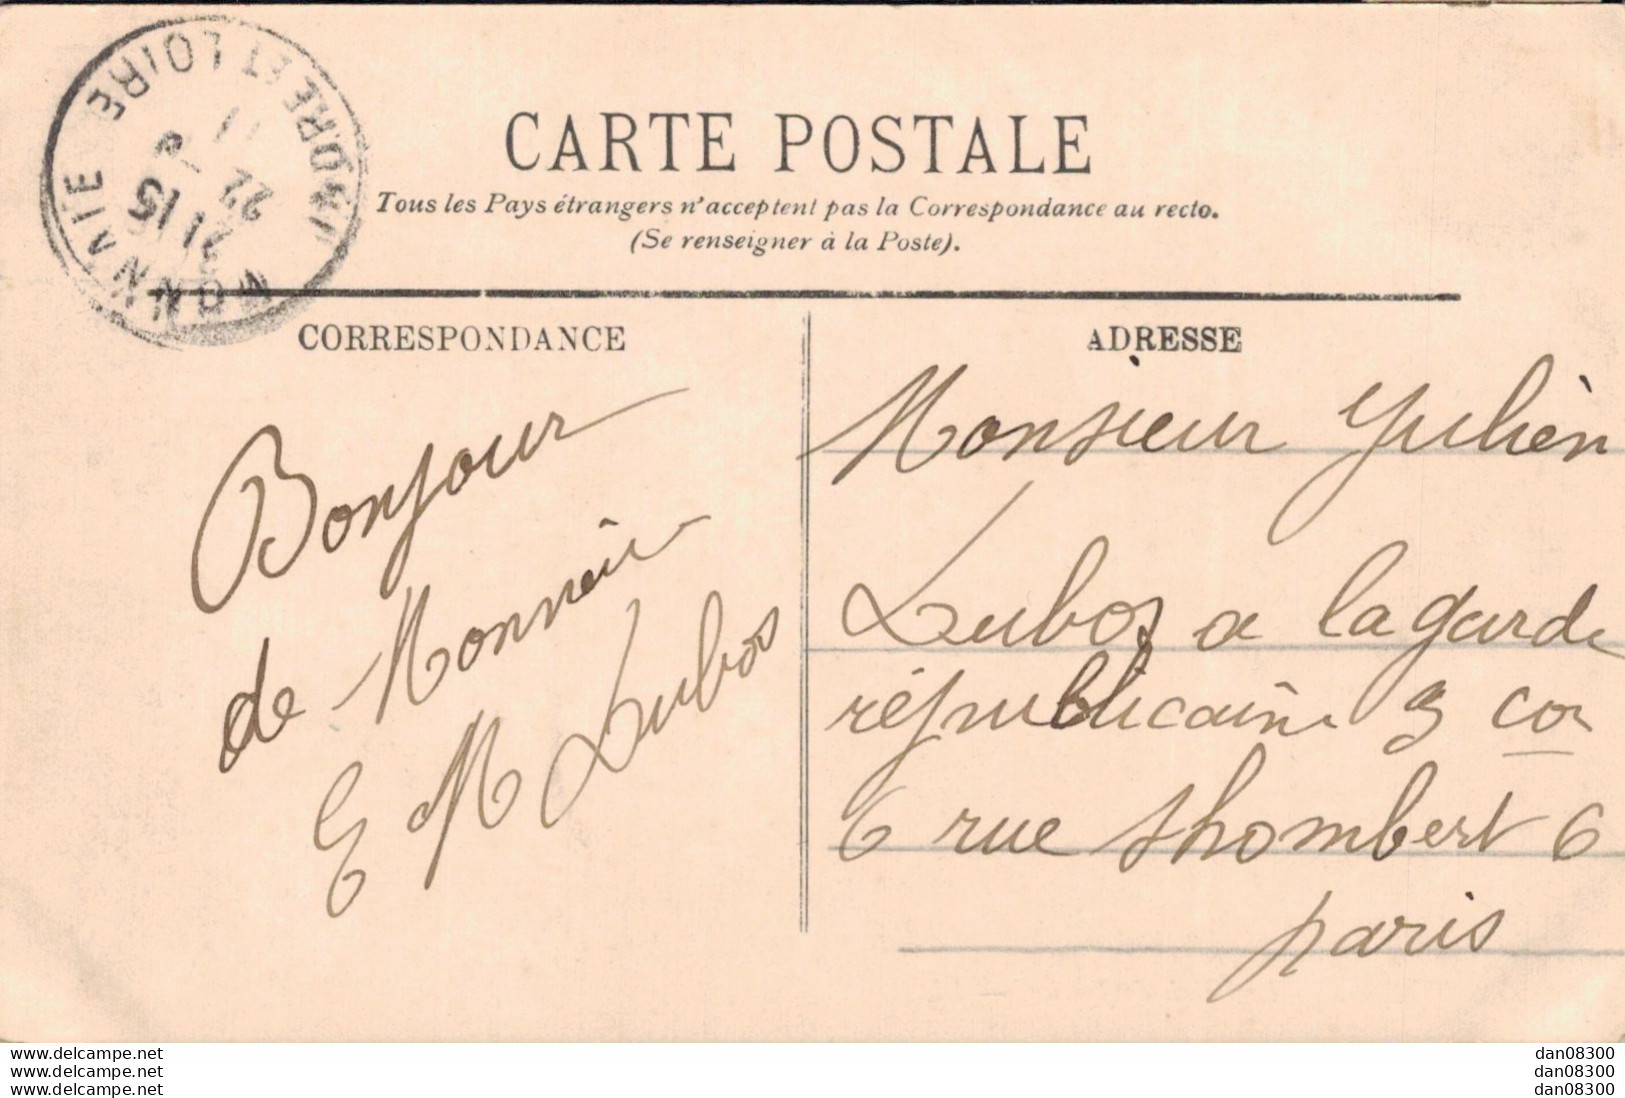 MONNAIE INDRE ET LOIRE
21 15
22
11
CARTE POSTALE
Tous les Pays étrangers n'acceptent pas la Correspondance au recto.
(Se renseigner à la Poste).
CORRESPONDANCE
Bonjour
de
E M Lubos
ADRESSE
Monsieur Julien
Lubos a la garde
républicaine 3
6 rue shombert 6
paris
www.delcampe.net
www.delcampe.net
www.delcampe.net
dan08300
dan08300
dan08300